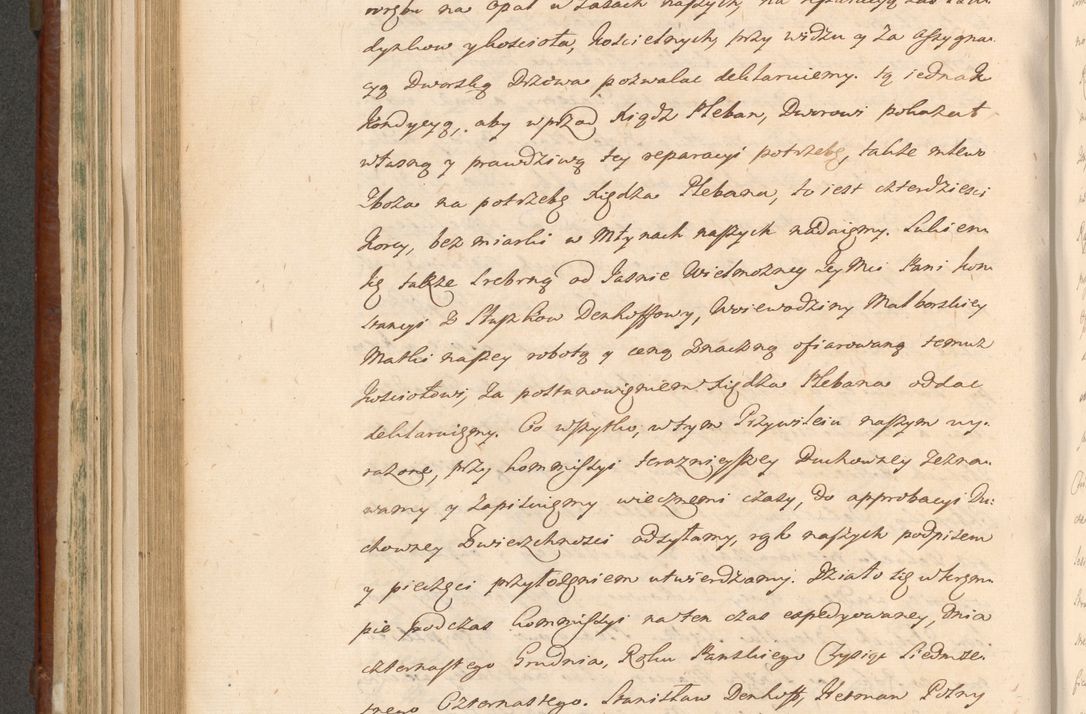 wrębu na Opał w Lasach naszych, na reparacyą zas bu-
dynkow y kościoła, kościelnych, przy widzu y za assygna-
cyą Dworską Drzewa pozwalac deklaruiemy. tą iednak
Kondycyą, aby wprzod Xiądz Pleban, Dworowi pokazał
własną y prawdziwą tey reparacyi potrzebę, także mlewo
Zboża na potrzebę Xiędza Plebana, to iest czterdziesci
Korcy, bez miarki w Młynach naszych nadaiemy. Sukien-
kę także srebrną od Jasnie Wielmożney Jey Mci Pani Kon-
stancyi z Słupkow Denhoffowy, Woiewodziny Malborskiey
Matki naszey robotą y ceną znaczną ofiarowaną temuz
Kosciołowi, za postanowieniem Xiędza Plebana oddac
deklaruiemy. Co wszytko, w tym Przywileiu naszym wy-
rażone, przy kommissyi teraznieyszey Duchowney zezna-
wamy y zapisuiemy wiecznemi czasy, do approbacyi Du-
chowney Zwierzchnosci odsyłamy, rąk naszych podpisem
y pieczęci przyłożeniem utwierdzamy. Działo się w Krzem-
pie podczas kommissyi na ten czas expedyowaney, Dnia
czternastego Grudnia, Roku Panskiego Tysiąc Siedmset-
tnego Czternastego. Stanisław Denhoff, Hetman Polny